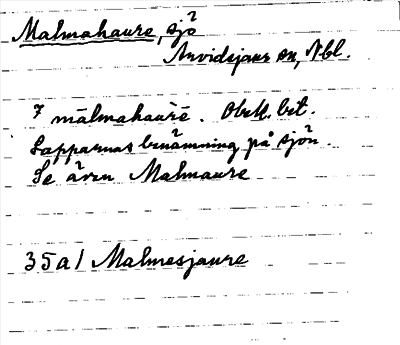 Malmahaure, sjö
Arvidsjaur sn, Nbl.
7 mālmahau͡rē. Obekl. bet.
Lapparnas benämning på sjön.
Se även Malmaure
35a1 Malmesjaure